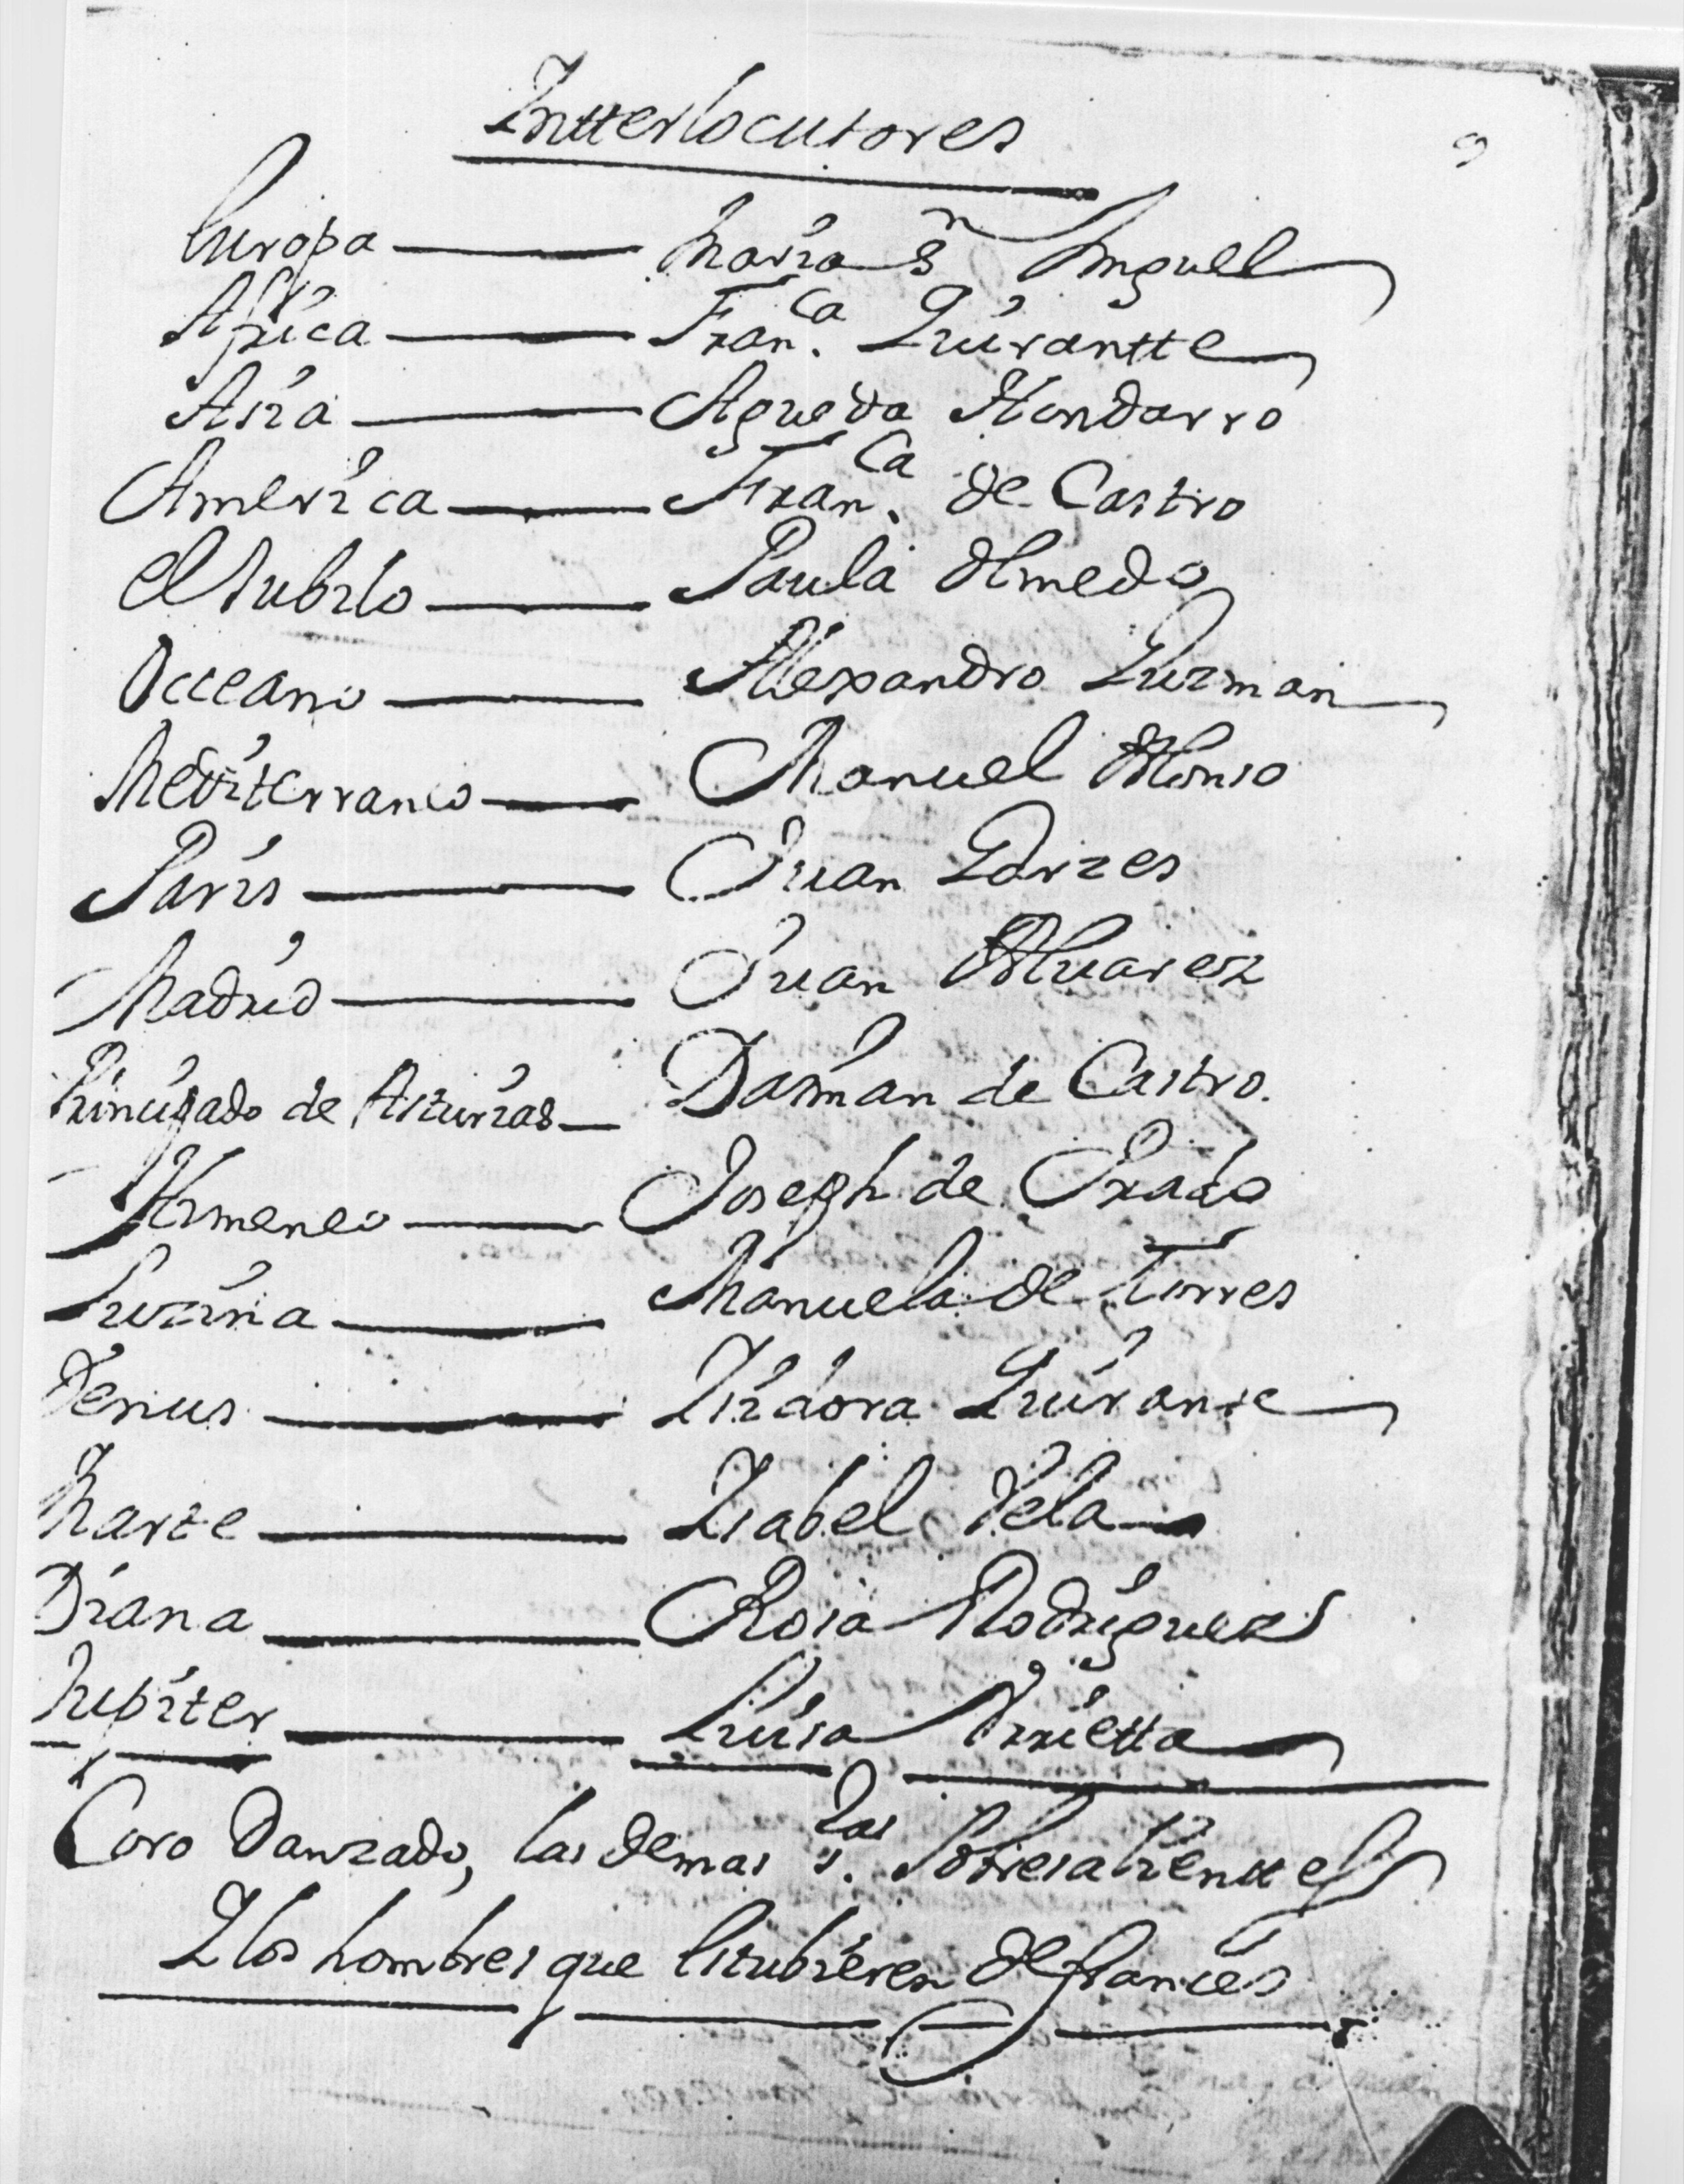 Intterlocutores
Europa — Maria Sn Miguel
Africa — Fran.ca Guirantte
Asia — Agueda Hondarro
America — Fran.ca de Castro
El Iubilo — Paula Olmedo
Occeano — Alexandro Guzman
Mediterraneo — Manuel Alonso
Paris — Juan Garzes
Madrid — Juan Alvarez
Principado de Asturias — Damian de Castro.
Himeneo — Joseph de Prado
Luzina — Manuela de Torres
Venus — Isidora Guirante
Marte — Isabel Vela
Diana — Rosa Rodriguez
Iupiter — Luisa Arrietta
Coro Danzado, las demas s.las Sobresalienttes
I los hombres que estubieren de frances